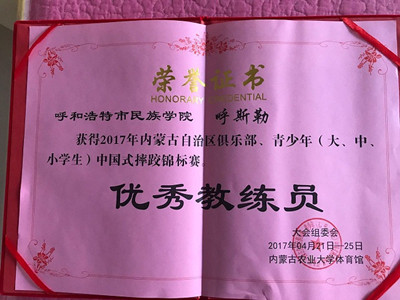 荣誉证书
HONORARY CREDENTIAL
呼和浩特市民族学院 呼斯勒
获得2017年内蒙古自治区俱乐部、青少年（大、中、
小学生）中国式摔跤锦标赛
优秀教练员
大会组委会
2017年04月21日—25日
内蒙古农业大学体育馆